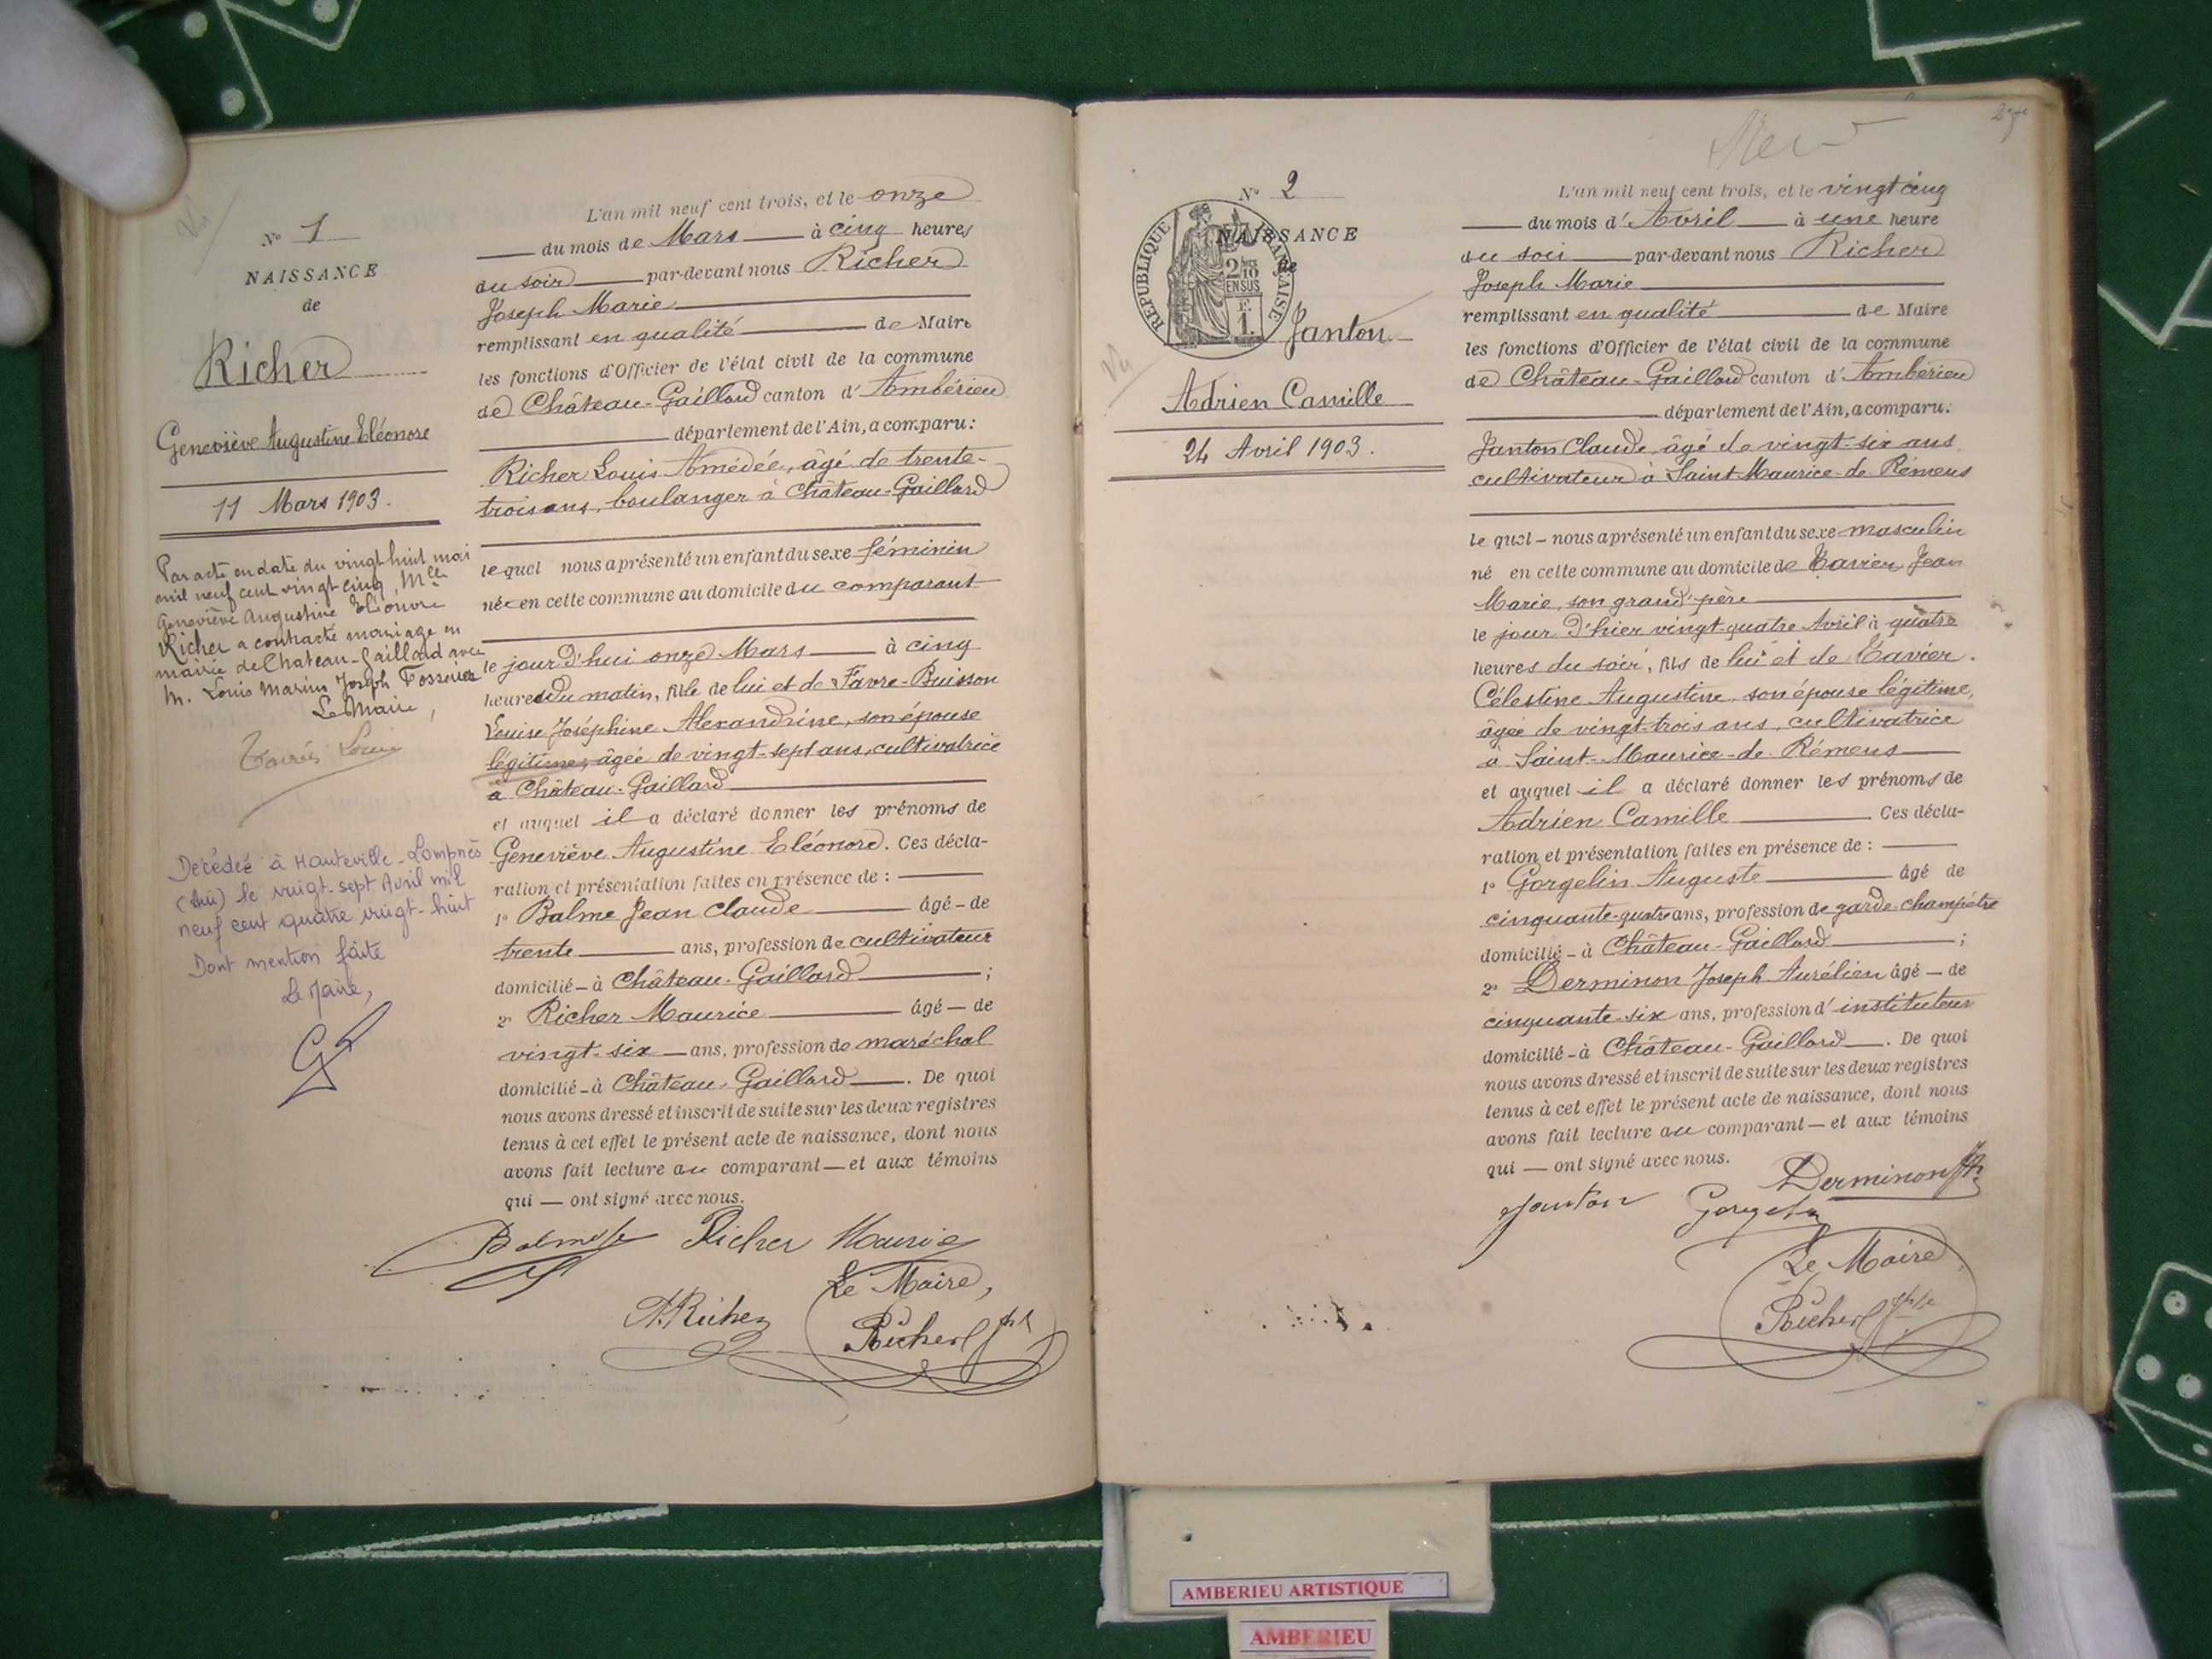 Nº 1
NAISSANCE
de
Richer
Geneviève Augustine Eléonore
11 Mars 1903.
Par acte en date du vingt huit mai
mil neuf cent vingt cinq, Mlle
Geneviève Augustine Eléonore
Richer a contracté mariage en
mairie de Chateau-Gaillard avec
M. Louis Marius Joseph
Le Maire,
Décédée à Hauteville-Lompnès
(Ain) le vingt-sept Avril mil
neuf cent quatre vingt-huit
Dont mention faite
Le Maire,
L'an mil neuf cent trois, et le onze
du mois de Mars à cinq heures
du soir par-devant nous Richer
Joseph Marie
remplissant en qualité de Maire
les fonctions d'Officier de l'état civil de la commune
de Château-Gaillard canton d'Ambérieu
département de l'Ain, a comparu:
Richer Louis Amédée, âgé de trente-
trois ans, boulanger à Château-Gaillard
lequel nous a présenté un enfant du sexe féminin
née en cette commune au domicile du comparant
le jour d'hui onze Mars à cinq
heures du matin, fille de lui et de Favre-Buisson
Louise Joséphine Alexandrine, son épouse
légitime, âgée de vingt-sept ans, cultivatrice
à Château-Gaillard
et auquel il a déclaré donner les prénoms de
Geneviève Augustine Eléonore. Ces décla-
ration et présentation faites en présence de :
1º Balme Jean Claude âgé de
trente ans, profession de cultivateur
domicilié à Château-Gaillard ;
2º Richer Maurice âgé de
vingt-six ans, profession de maréchal
domicilié à Château-Gaillard. De quoi
nous avons dressé et inscrit de suite sur les deux registres
tenus à cet effet le présent acte de naissance, dont nous
avons fait lecture au comparant et aux témoins
qui ont signé avec nous.
Richer Maurice
A. Richer
Le Maire,
Richer Jph
Nº 2
NAISSANCE
de
REPUBLIQUE FRANÇAISE
2/10 EN SUS
F.
1.
Janton
Adrien Camille
24 Avril 1903.
L'an mil neuf cent trois, et le vingt cinq
du mois d'Avril à une heure
du soir par-devant nous Richer
Joseph Marie
remplissant en qualité de Maire
les fonctions d'Officier de l'état civil de la commune
de Château-Gaillard canton d'Ambérieu
département de l'Ain, a comparu:
Janton Claude, âgé de vingt-six ans
cultivateur à Saint-Maurice-de-Rémens
lequel nous a présenté un enfant du sexe masculin
né en cette commune au domicile de Tavier Jean
Marie, son grand'père
le jour d'hier vingt-quatre Avril à quatre
heures du soir, fils de lui et de Tavier
Célestine Augustine son épouse légitime,
âgée de vingt-trois ans, cultivatrice
à Saint-Maurice-de-Rémens
et auquel il a déclaré donner les prénoms de
Adrien Camille. Ces décla-
ration et présentation faites en présence de :
1º Gorgelin Auguste âgé de
cinquante-quatre ans, profession de garde-champêtre
domicilié à Château-Gaillard ;
2º Derminon Joseph Aurélien âgé de
cinquante-six ans, profession d'instituteur
domicilié à Château-Gaillard. De quoi
nous avons dressé et inscrit de suite sur les deux registres
tenus à cet effet le présent acte de naissance, dont nous
avons fait lecture au comparant et aux témoins
qui ont signé avec nous.
Derminon
Janton
Gorgelin
Le Maire
Richer Jph
AMBERIEU ARTISTIQUE
AMBERIEU